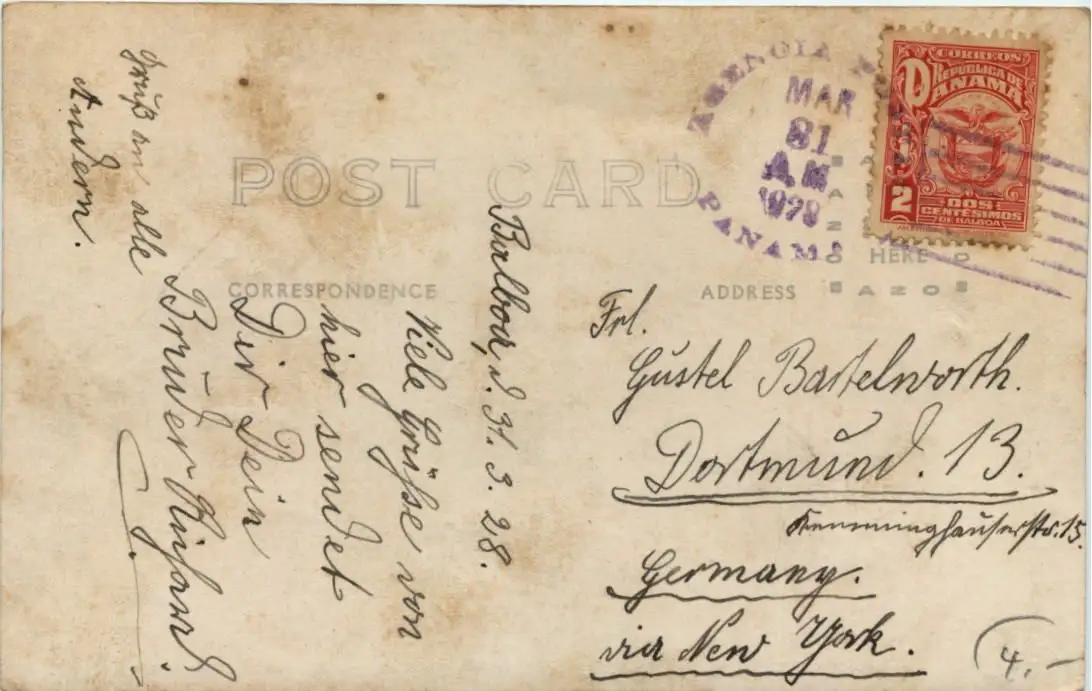 POST CARD
CORRESPONDENCE
ADDRESS
HERE
AZOS
AGENCIA
MAR
31
A.M
1928
PANAMA
CORREOS
REPUBLICA DE
PANAMA
2
DOS
CENTÉSIMOS
DE BALBOA
Balboa, d. 31. 3. 28.
Viele Grüße von
hier sendet
Dir Dein
Bruder
Gruß an alle
Andern.
Frl.
Gustel Bartelworth.
Dortmund. 13.
Kemminghauserstr. 15.
Germany.
via New York.
4.-